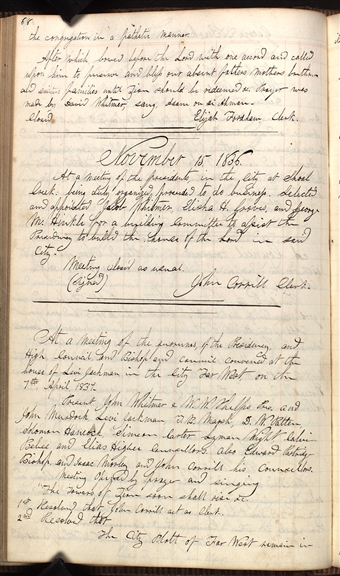 68.
the congregation in a pathetic manner.
After which bowed before the Lord with one accord and called
upon him to preserve and bless our absent fathers mothers brothers
and sisters families until Zion should be redeemed &c. Prayer was
made by David Whitmer, sang, deam on di Ahman.
Closed. Elijah Fordham, Clerk.
November 15 1836.
At a meeting of the presidents, in the City at Shoal
Creek, being duly organized, proceeded to do business. Selected
and appointed Jacob Whitmer, Elisha H. Groves, and George
M. Hinkle for a building Committee to assist the
Presidency to build the house of the Lord in said
City.
Meeting closed as usual.
(Signed) John Corrill Clerk.
At a meeting of the of the Presidency and
High Council and Bishop and council convened at the
house of Levi Jackman in the City Far West, on the
7th April 1837.
Present John Whitmer & W. W. Phelps Pres. and
John Murdock Levi Jackman T. B. Marsh, D. W. Patten,
Solomon Hancock, Simeon Carter Lyman Wight, Calvin
Beebe and Elias Higbee Councillors. Also Edward Partridge
Bishop, and Isaac Morley and John Corrill his Councellors.
Meeting opened by prayer and singing
"The Towers of Zion soon shall rise" &c.
1st Resolved that John Corrill act as Clerk.
2nd Resolved that
The City Plott of Far West remain in